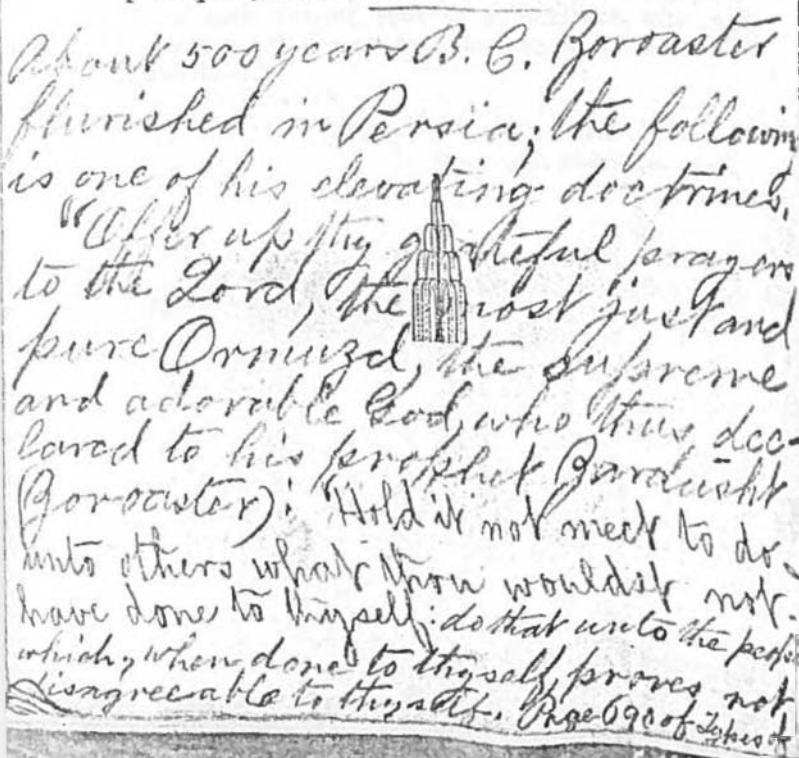 About 500 years B. C. Zoroaster
flurished in Persia; the following
is one of his elevating doctrines.
"Offer up thy grateful prayers
to the Lord, the most just and
pure Ormuzd, the supreme
and adorable God, who thus dec-
lared to his prophet Zardusht
(Zoroaster): "Hold it not meet to do
unto others what thou wouldst not
have done to thyself: do that unto the people
which, when done to thyself, proves not
disagreeable to thyself. Page 690 of